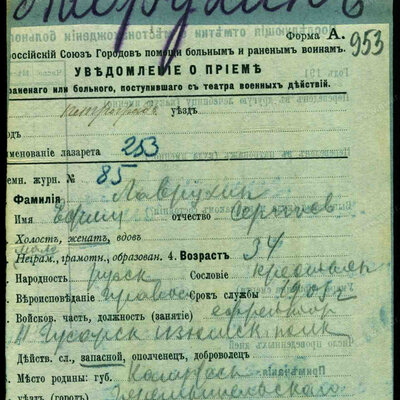 Лаврухин
Форма А.
953
россійскій Союзъ Городовъ помощи больнымъ и раненымъ воинамъ.
УВѢДОМЛЕНІЕ О ПРІЕМѢ
раненаго или больного, поступившаго съ театра военныхъ дѣйствій.
уѣздъ
одъ
именованіе лазарета 253
емн. журн. № 85
Фамилія Лаврухин
Имя Ефим отчество Сергеев
Холостъ, женатъ, вдовъ
Неграм., грамотн., образован. 4. Возрастъ 34
Народность русск Сословіе крестьян
Вѣроисповѣданіе Правос Срокъ службы 1905 г
Войсков. часть, должность (занятіе) ефрейтор
11 Гусарск изюмск полк
Дѣйств. сл., запасной, ополченецъ, доброволецъ
Мѣсто родины: губ. Калужск
уѣздъ (городъ) Перемышльскаго